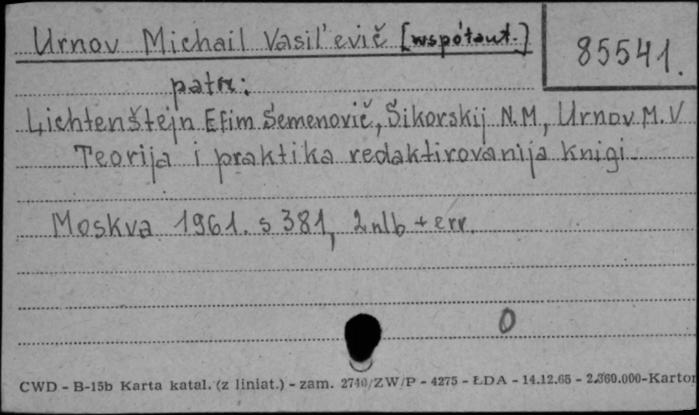 Urnov Michail Vasil'evič [współaut.]
85541.
patrz:
Lichtenštejn Efim Semenovič, Šikorskij N.M, Urnov M.V
Teorija i praktika redaktirovanija knigi.
Moskva 1961. s 381, 2 nlb + err.
0
CWD - B-15b Karta katal. (z liniat.) - zam. 2740/ZW/P - 4275 - ŁDA - 14.12.65 - 2.360.000-Karton